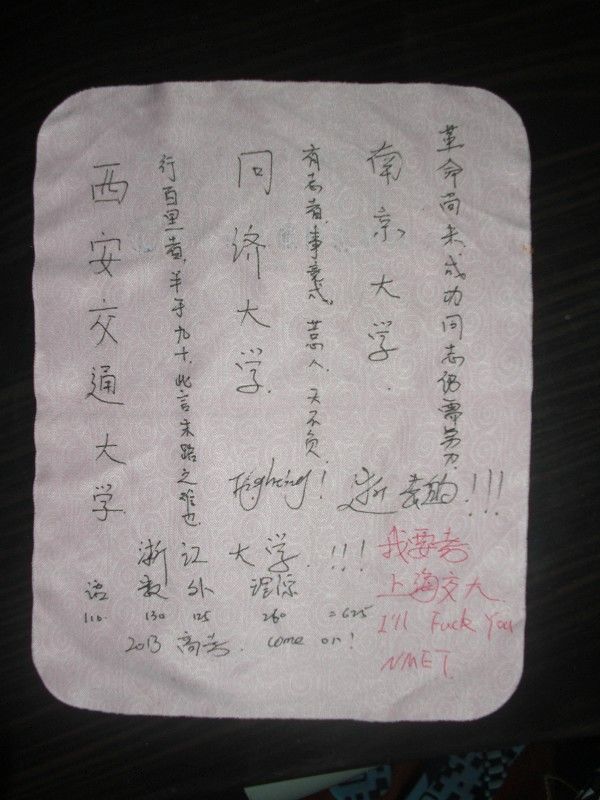 革命尚未成功同志仍需努力
南京大学.
有志者,事竟成,苦心人,天不负.
同济大学.
行百里者,半于九十,此言末路之难也
西安交通大学
Fighting! !!!
浙江大学.!!!
语 数 外 理综
110. 130 125 260 =625
2013 高考. come on!
我要考
上海交大.
I'll Fuck You
NMET.